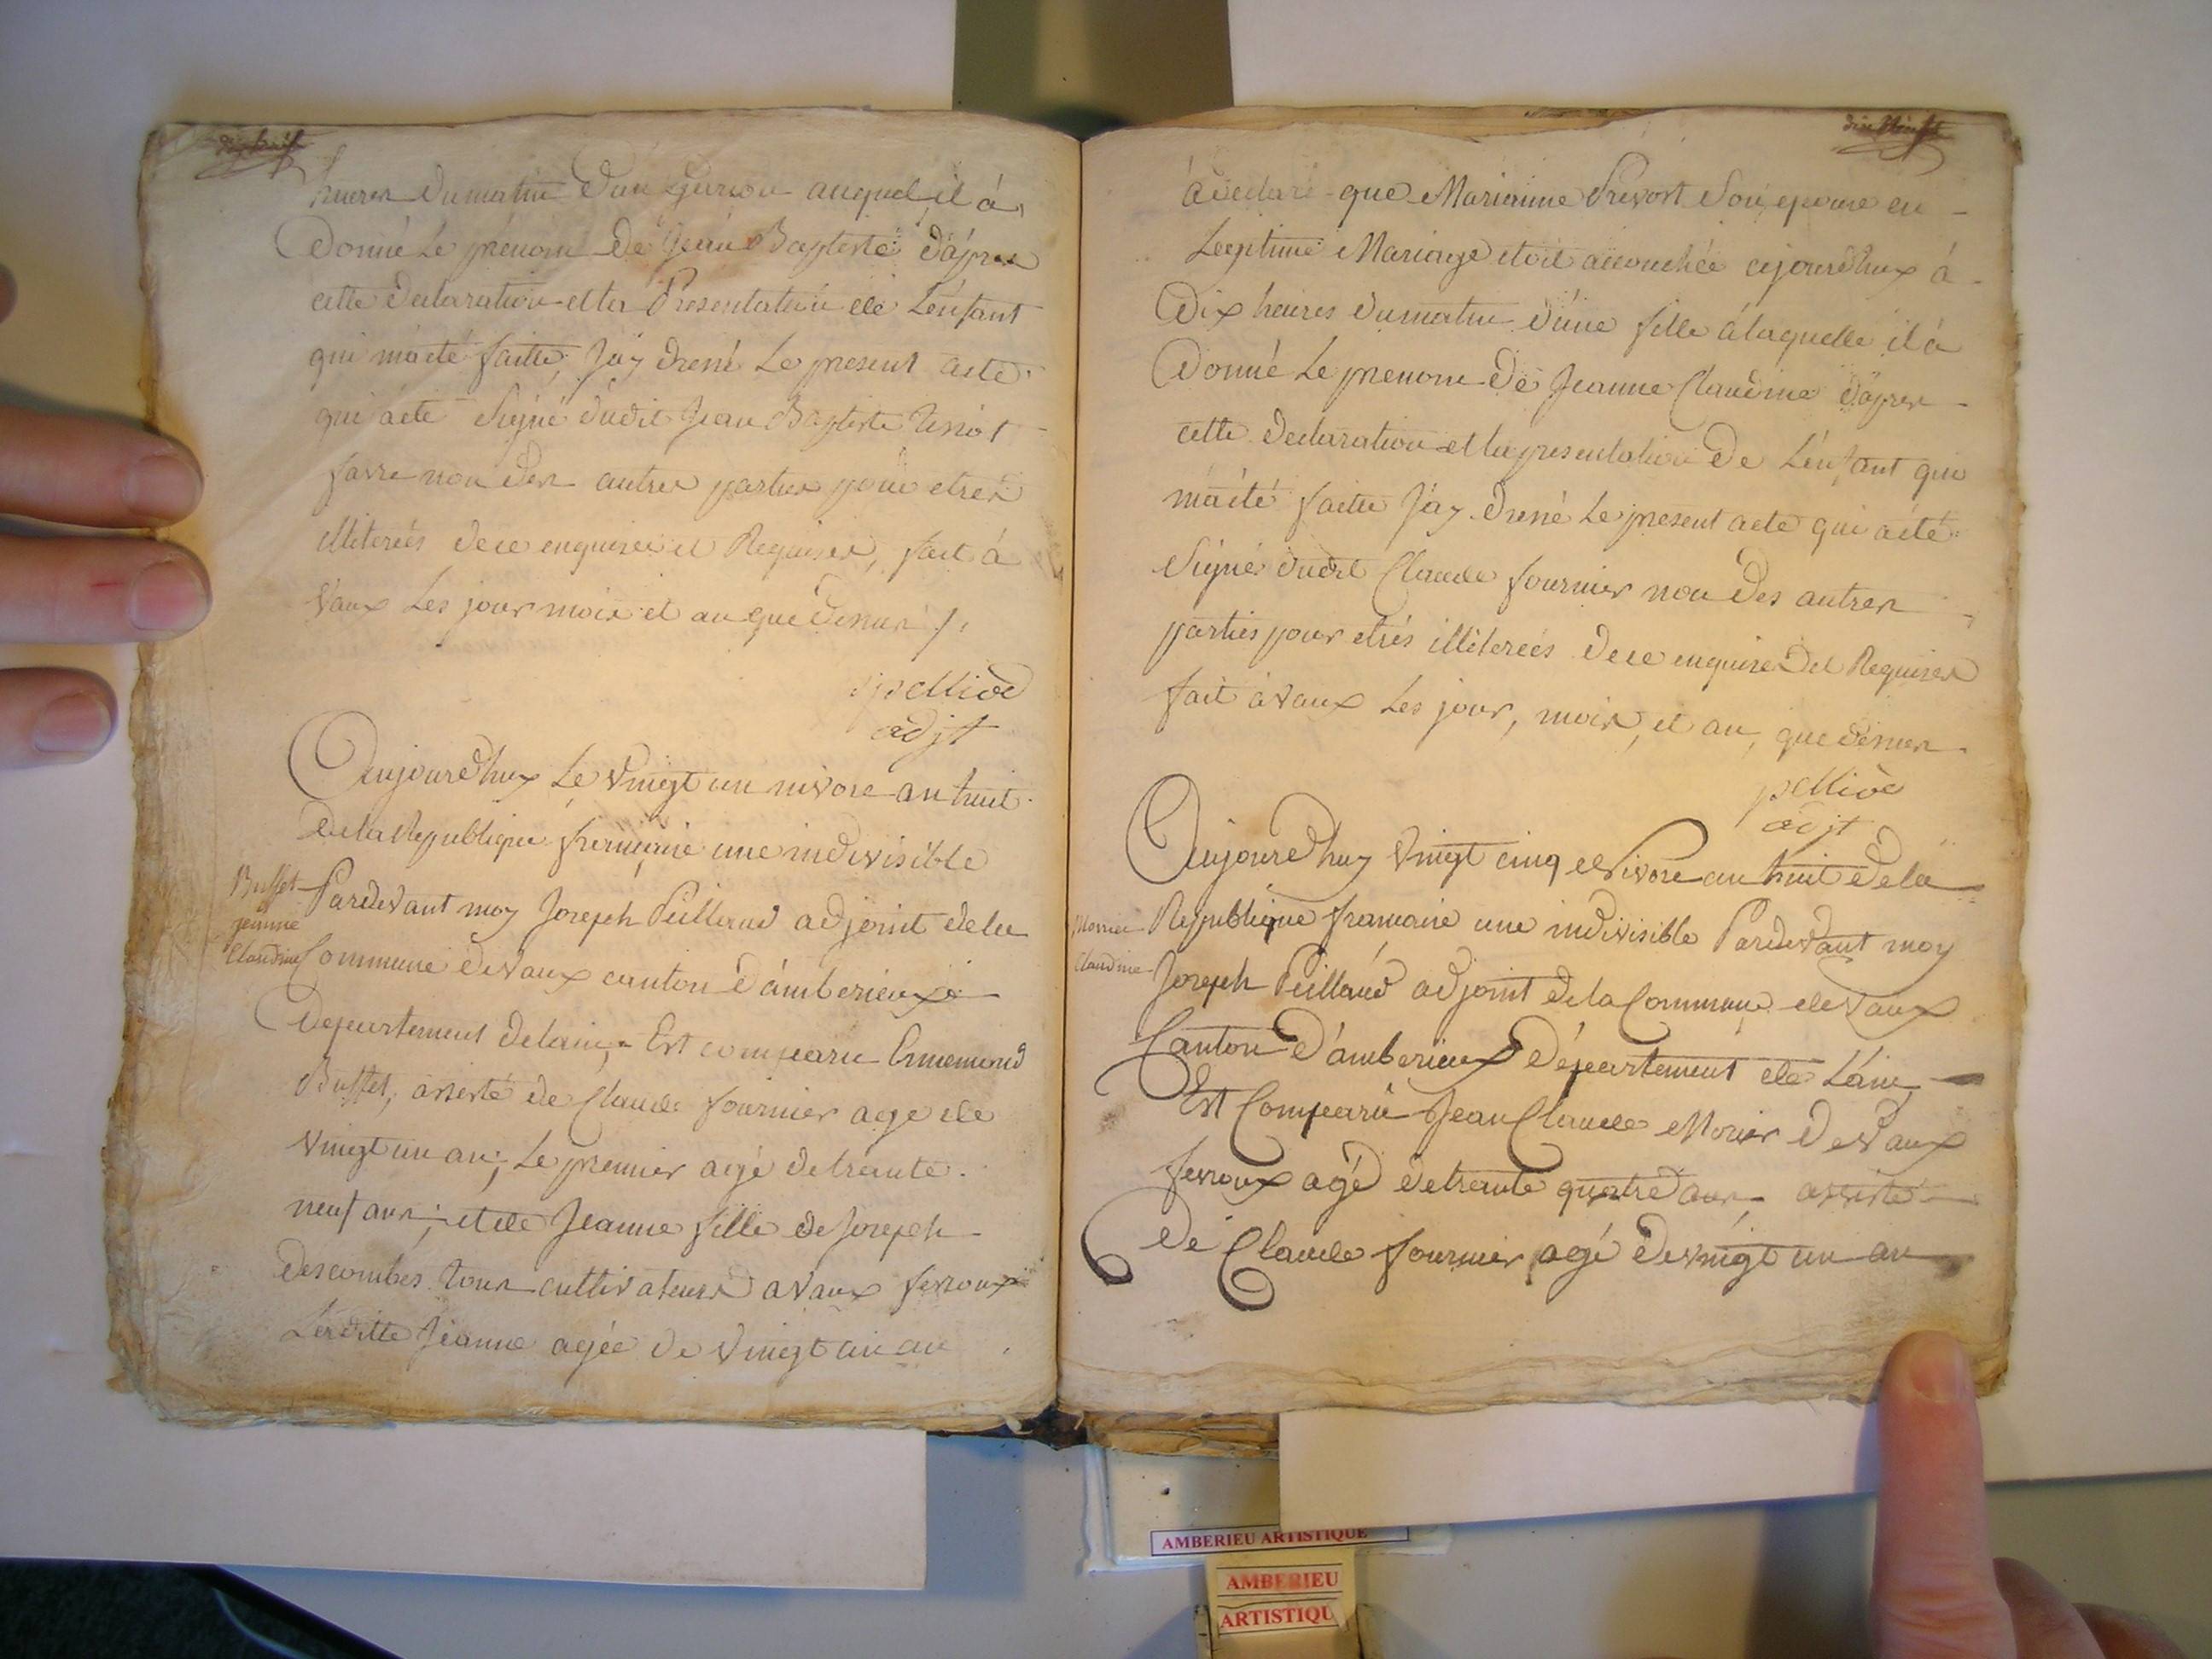 dix huit
heures du matin d'un Garson auquel il à
Donné Le prénom De Jean Baptiste d'après
cette declaration et la Presentation de L'enfant
qui m'a eté faitte, J'ay dressé Le present acte
qui à eté Signé dudit Jean Baptiste
favre non des autres parties pour etres
illiterées de ce enquises et Requises, fait à
Vaux Les jour mois et an que dessus /.
pelliod
adjt
Aujourd'huy Le Vingt un nivose an huit
de la Republique francaise une indivisible
Buffet
jeanne
Claudine
Pardevant moy Joseph Peilliaud adjoint de la
Commune de Vaux canton d'amberieux
Departement de lain, Est comparu Ennemond
Buffet, assisté de Claude fournier age de
Vingt un an, Le premier agé de trente
neuf ans; et de Jeanne fille de Joseph
descombes tous cultivateurs a Vaux fevroux
Laditte Jeanne agée de Vingt un an
dix neuf
à declaré que Marianne Prevost Son epouse en
Legitime Mariage etoit accouchée cejourd'huy à
Dix heures du matin d'une fille à laquelle il à
Donné Le prenom de Jeanne Claudine d'après
cette declaration et la presentation de L'enfant qui
m'a eté faitte J'ay dressé Le present acte qui a eté
Signé dudit Claude fournier non des autres
parties pour etrés illiterées de ce enquises et Requises
fait à Vaux Les jour, mois, et an, que dessus
pelliod
adjt
Aujourd'huy Vingt cinq Nivose an huit de la
Monier
Claudine
Republique francaise une indivisible Pardevant moy
Joseph Peilliaud adjoint de la Commune de Vaux
Canton d'amberieux Département de Lain,
Est Comparu Jean Claude Monier de Vaux
fevroux agé de trente quatre ans assisté
de Claude fournier agé de vingt un an
AMBERIEU ARTISTIQUE
AMBERIEU
ARTISTIQU